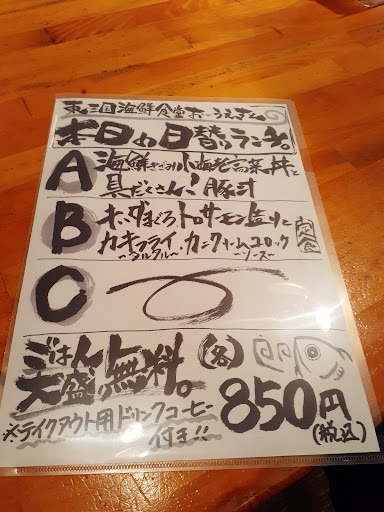 東三国海鮮食堂おーうえすと
本日の日替りランチ。
A 海鮮きざみ小海老高菜丼と
具だくさん!豚汁
B ホンマグロ トロサーモン造りと
カキフライ、カニクリームコロッケ
〜タルタル〜 〜ソース〜
定食
C
ごはん
大盛 無料。
(各)
850円
(税込)
※テイクアウト用ドリンクコーヒー
付き!!